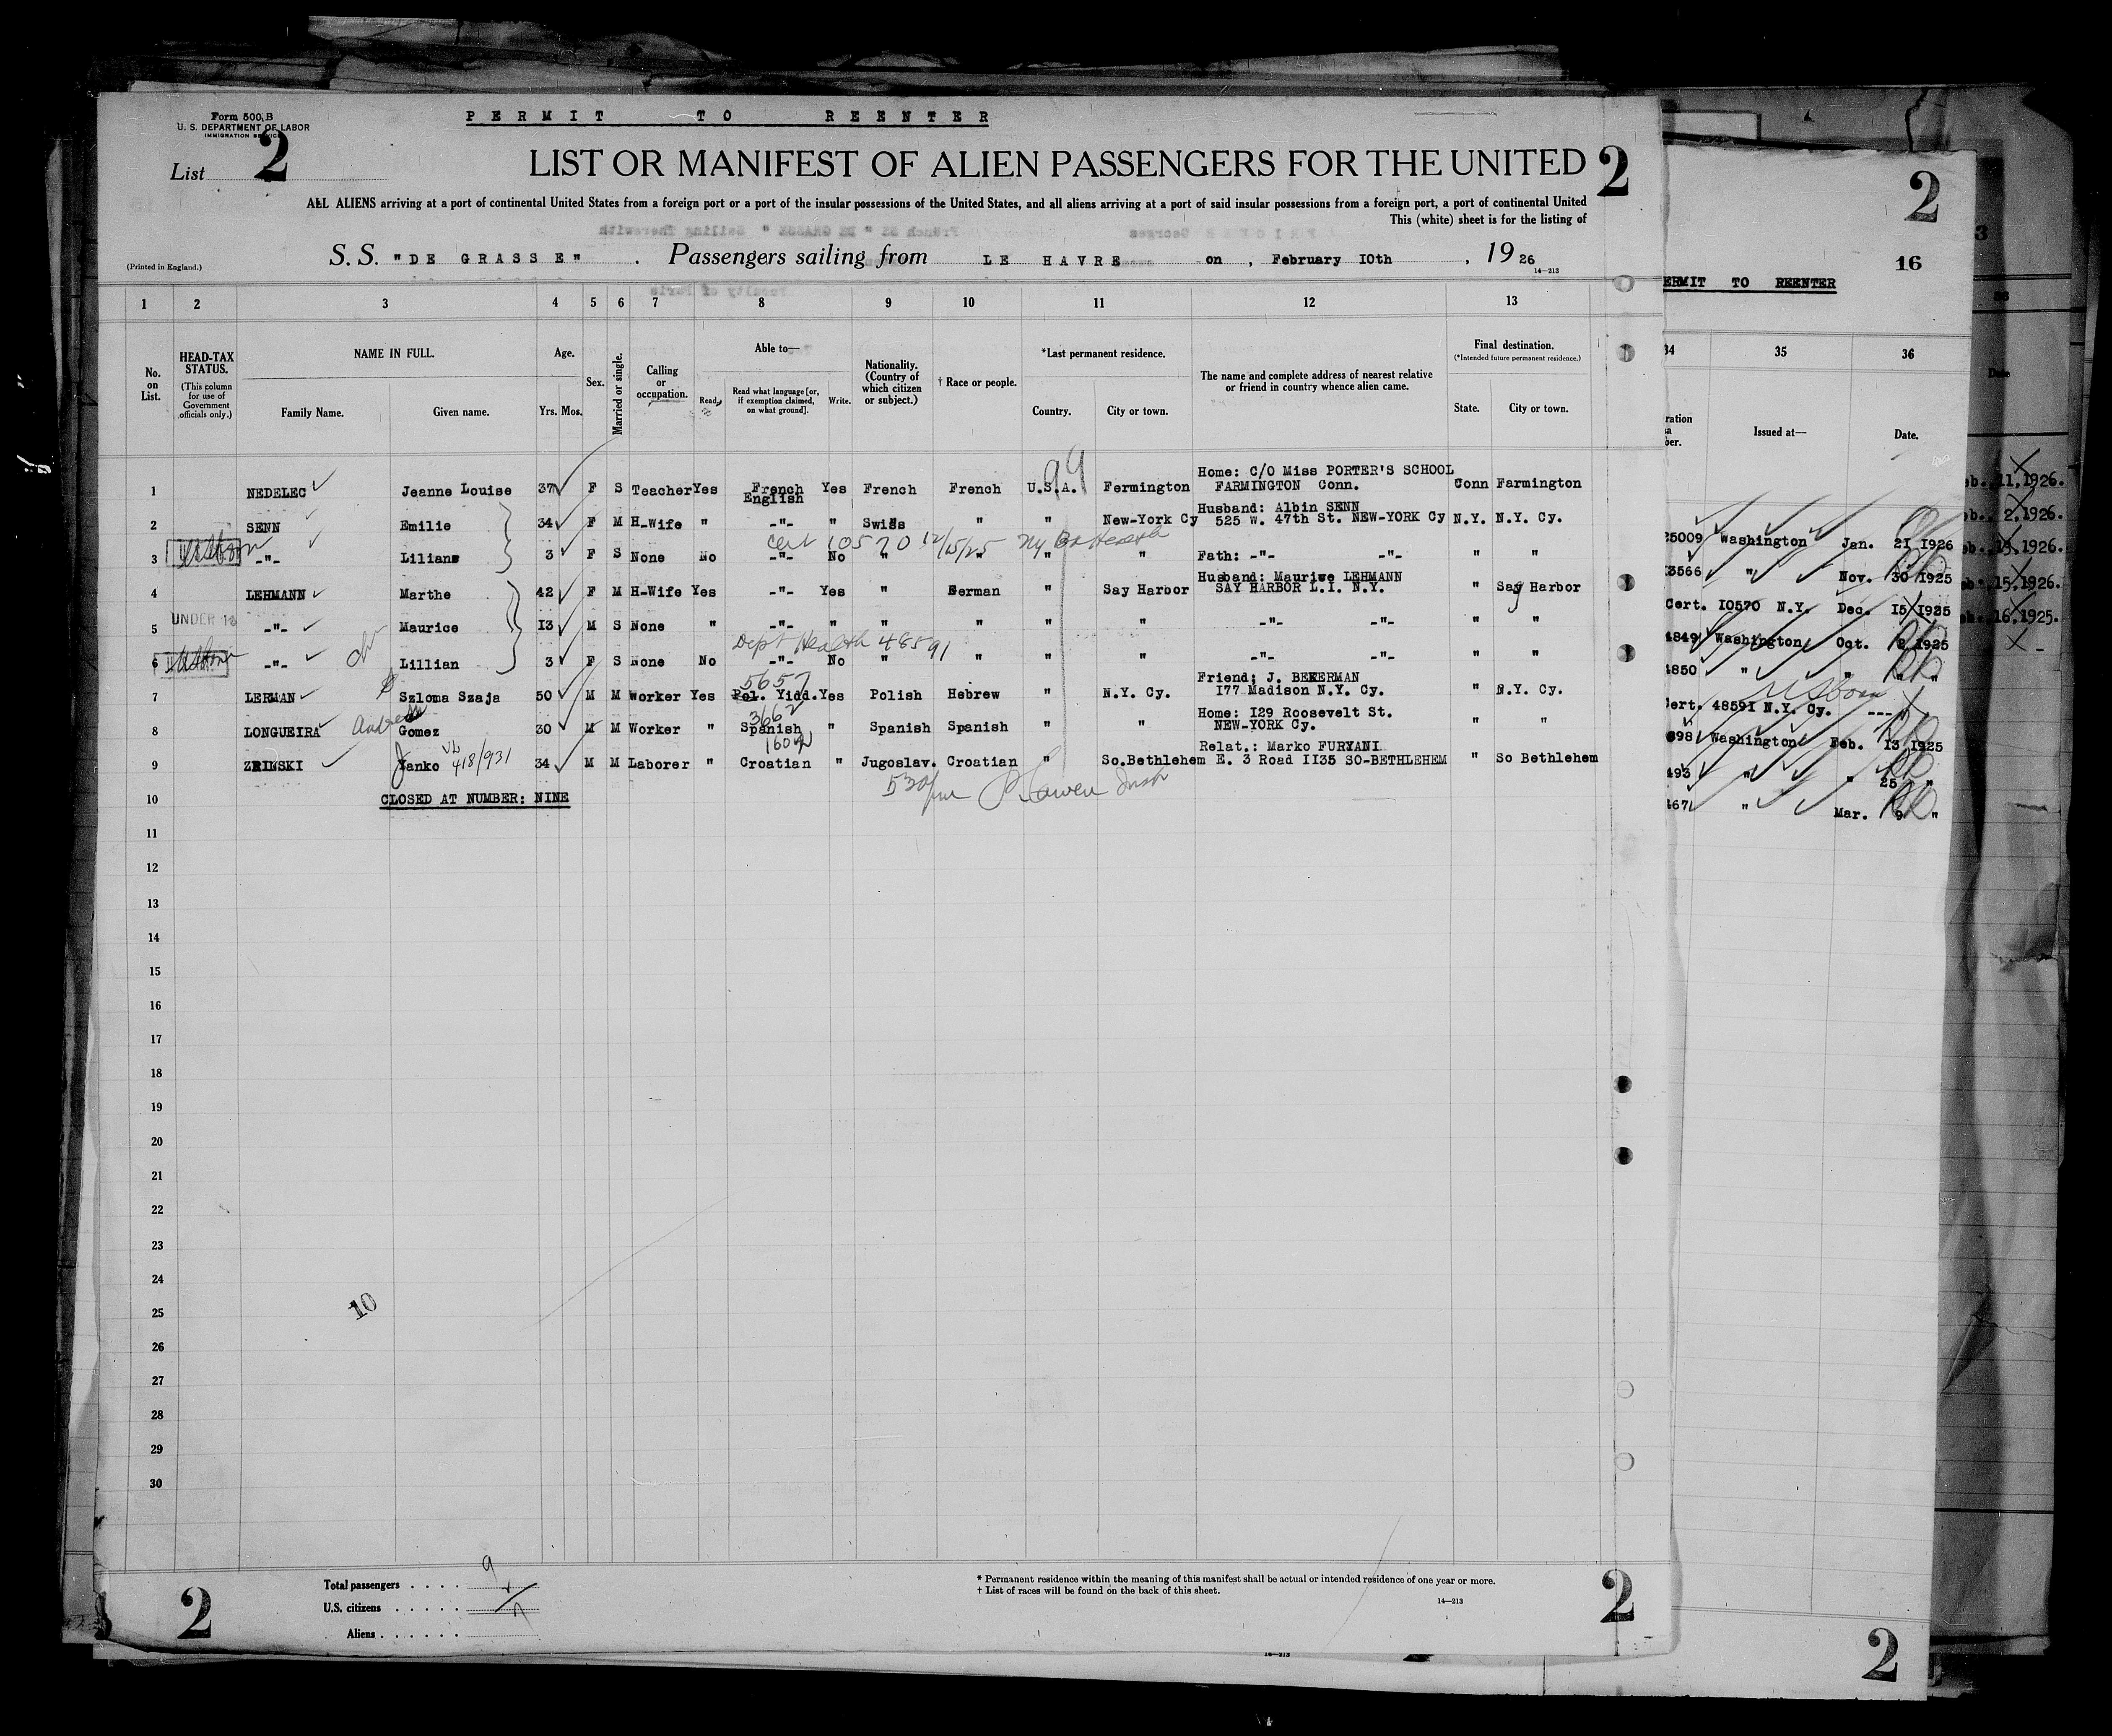 PERMIT TO REENTER
Form 500 B
U. S. DEPARTMENT OF LABOR
IMMIGRATION SERVICE
List 2
LIST OR MANIFEST OF ALIEN PASSENGERS FOR THE UNITED 2
ALL ALIENS arriving at a port of continental United States from a foreign port or a port of the insular possessions of the United States, and all aliens arriving at a port of said insular possessions from a foreign port, a port of continental United
This (white) sheet is for the listing of
(Printed in England.)
S. S. "DE GRASSE" . Passengers sailing from LE HAVRE on , February 10th , 19 26
14—213
1 2 3 4 5 6 7 8 9 10 11 12 13
No. on List.
HEAD-TAX STATUS.
(This column for use of Government officials only.)
NAME IN FULL.
Family Name. Given name.
Age.
Yrs. Mos.
Sex.
Married or single.
Calling or occupation.
Able to—
Read. Read what language [or, if exemption claimed, on what ground]. Write.
Nationality. (Country of which citizen or subject.)
† Race or people.
*Last permanent residence.
Country. City or town.
The name and complete address of nearest relative or friend in country whence alien came.
Final destination.
(*Intended future permanent residence.)
State. City or town.
99
1 NEDELEC Jeanne Louise 37 F S Teacher Yes French English Yes French French U.S.A. Fermington Home: C/O Miss PORTER'S SCHOOL FARMINGTON Conn. Conn Farmington
2 SENN Emilie 34 F M H-Wife " -"- " Swiss " " New-York Cy Husband: Albin SENN 525 W. 47th St. NEW-YORK Cy N.Y. N.Y. Cy.
Cert 10570 12/15/25 NY Health
3 -"- Liliane 3 F S None No -"- No " " " " Father: -"- -"- " "
4 LEHMANN Marthe 42 F M H-Wife Yes -"- Yes " German " Say Harbor Husband: Maurice LEHMANN SAY HARBOR L.I. N.Y. " Say Harbor
UNDER 16
5 -"- Maurice 13 M S None " -"- " " " " " -"- -"- " "
Dept Health 48591
6 -"- Lillian 3 F S None No -"- No " " " " -"- -"- " "
5657
7 LERMAN Szloma Szaja 50 M M Worker Yes Pol. Yidd. Yes Polish Hebrew " N.Y. Cy. Friend: J. BEKERMAN 177 Madison N.Y. Cy. " N.Y. Cy.
3662
8 LONGUEIRA Andres Gomez 30 M M Worker " Spanish " Spanish Spanish " " Home: 129 Roosevelt St. NEW-YORK Cy. " "
1602
9 ZRINSKI Yanko 418/931 34 M M Laborer " Croatian " Jugoslav. Croatian " So.Bethlehem Relat.: Marko FURYANI E. 3 Road 1135 SO-BETHLEHEM " So Bethlehem
10 CLOSED AT NUMBER: NINE
11
12
13
14
15
16
17
18
19
20
21
22
23
24
25
26
27
28
29
30
10
Total passengers . . . . 9
U.S. citizens . . . . .
Aliens . . . . . .
* Permanent residence within the meaning of this manifest shall be actual or intended residence of one year or more.
† List of races will be found on the back of this sheet.
14—213
2
2
2
16
ERMIT TO REENTER
34 35 36
Issued at— Date.
25009 Washington Jan. 21 1926
3566 " Nov. 30 1925
Cert. 10570 N.Y. Dec. 15 1925
4849 Washington Oct. 9 1925
4850 " " "
ert. 48591 N.Y. Cy. ---
898 Washington Feb. 13 1925
493 " " 25 "
467 " Mar. 9 "
2
3
Date
eb. 11, 1926.
eb. 2, 1926.
eb. 13, 1926.
eb. 15, 1926.
eb. 16, 1925.